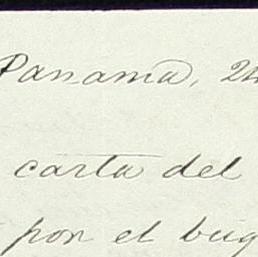 Panamá, 24
carta del
por el buq